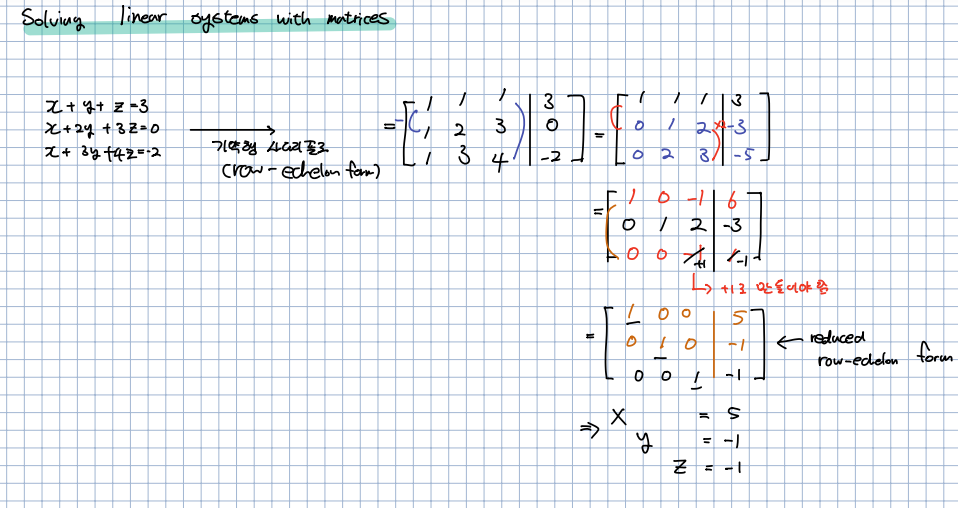 Solving linear systems with matrices
x + y + z = 3
x + 2y + 3z = 0
x + 3y + 4z = -2
기약행 사다리꼴로
(row-echelon form)
= [ 1 1 1 | 3
1 2 3 | 0
1 3 4 | -2 ]
= [ 1 1 1 | 3
0 1 2 | -3
0 2 3 | -5 ]
= [ 1 0 -1 | 6
0 1 2 | -3
0 0 +1 | -1 ]
↳ +1로 만들어야 함
= [ 1 0 0 | 5
0 1 0 | -1
0 0 1 | -1 ]
← reduced
row-echelon form
⇒ x = 5
y = -1
z = -1